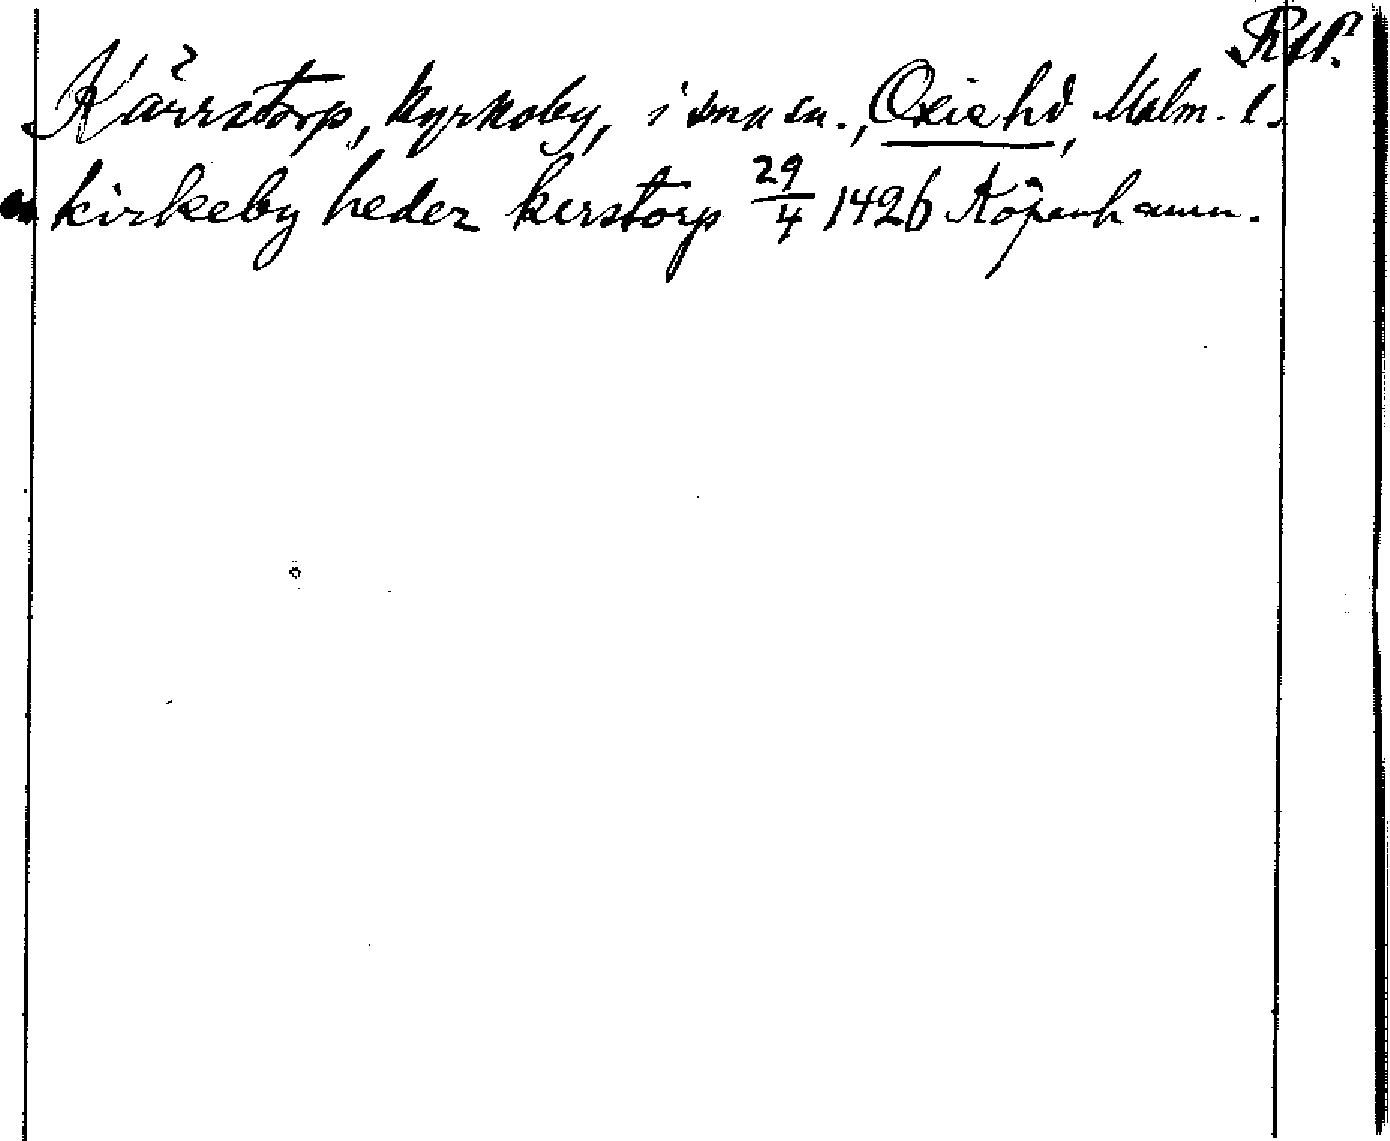 RAP.
Kärrstorp, kyrkoby, i smn sn., Oxie hd, Malm. l.
en kirkeby heder kerstorp 29/4 1426 Köpenhamn.